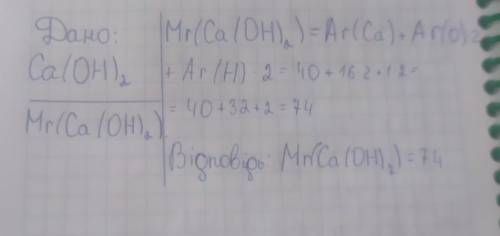 Дано:
Ca(OH)₂
Mr(Ca(OH)₂)
Mr(Ca(OH)₂)=Ar(Ca)+Ar(O)·2
+ Ar(H)·2 = 40+16·2+1·2=
= 40+32+2=74
Відповідь: Mr(Ca(OH)₂)=74